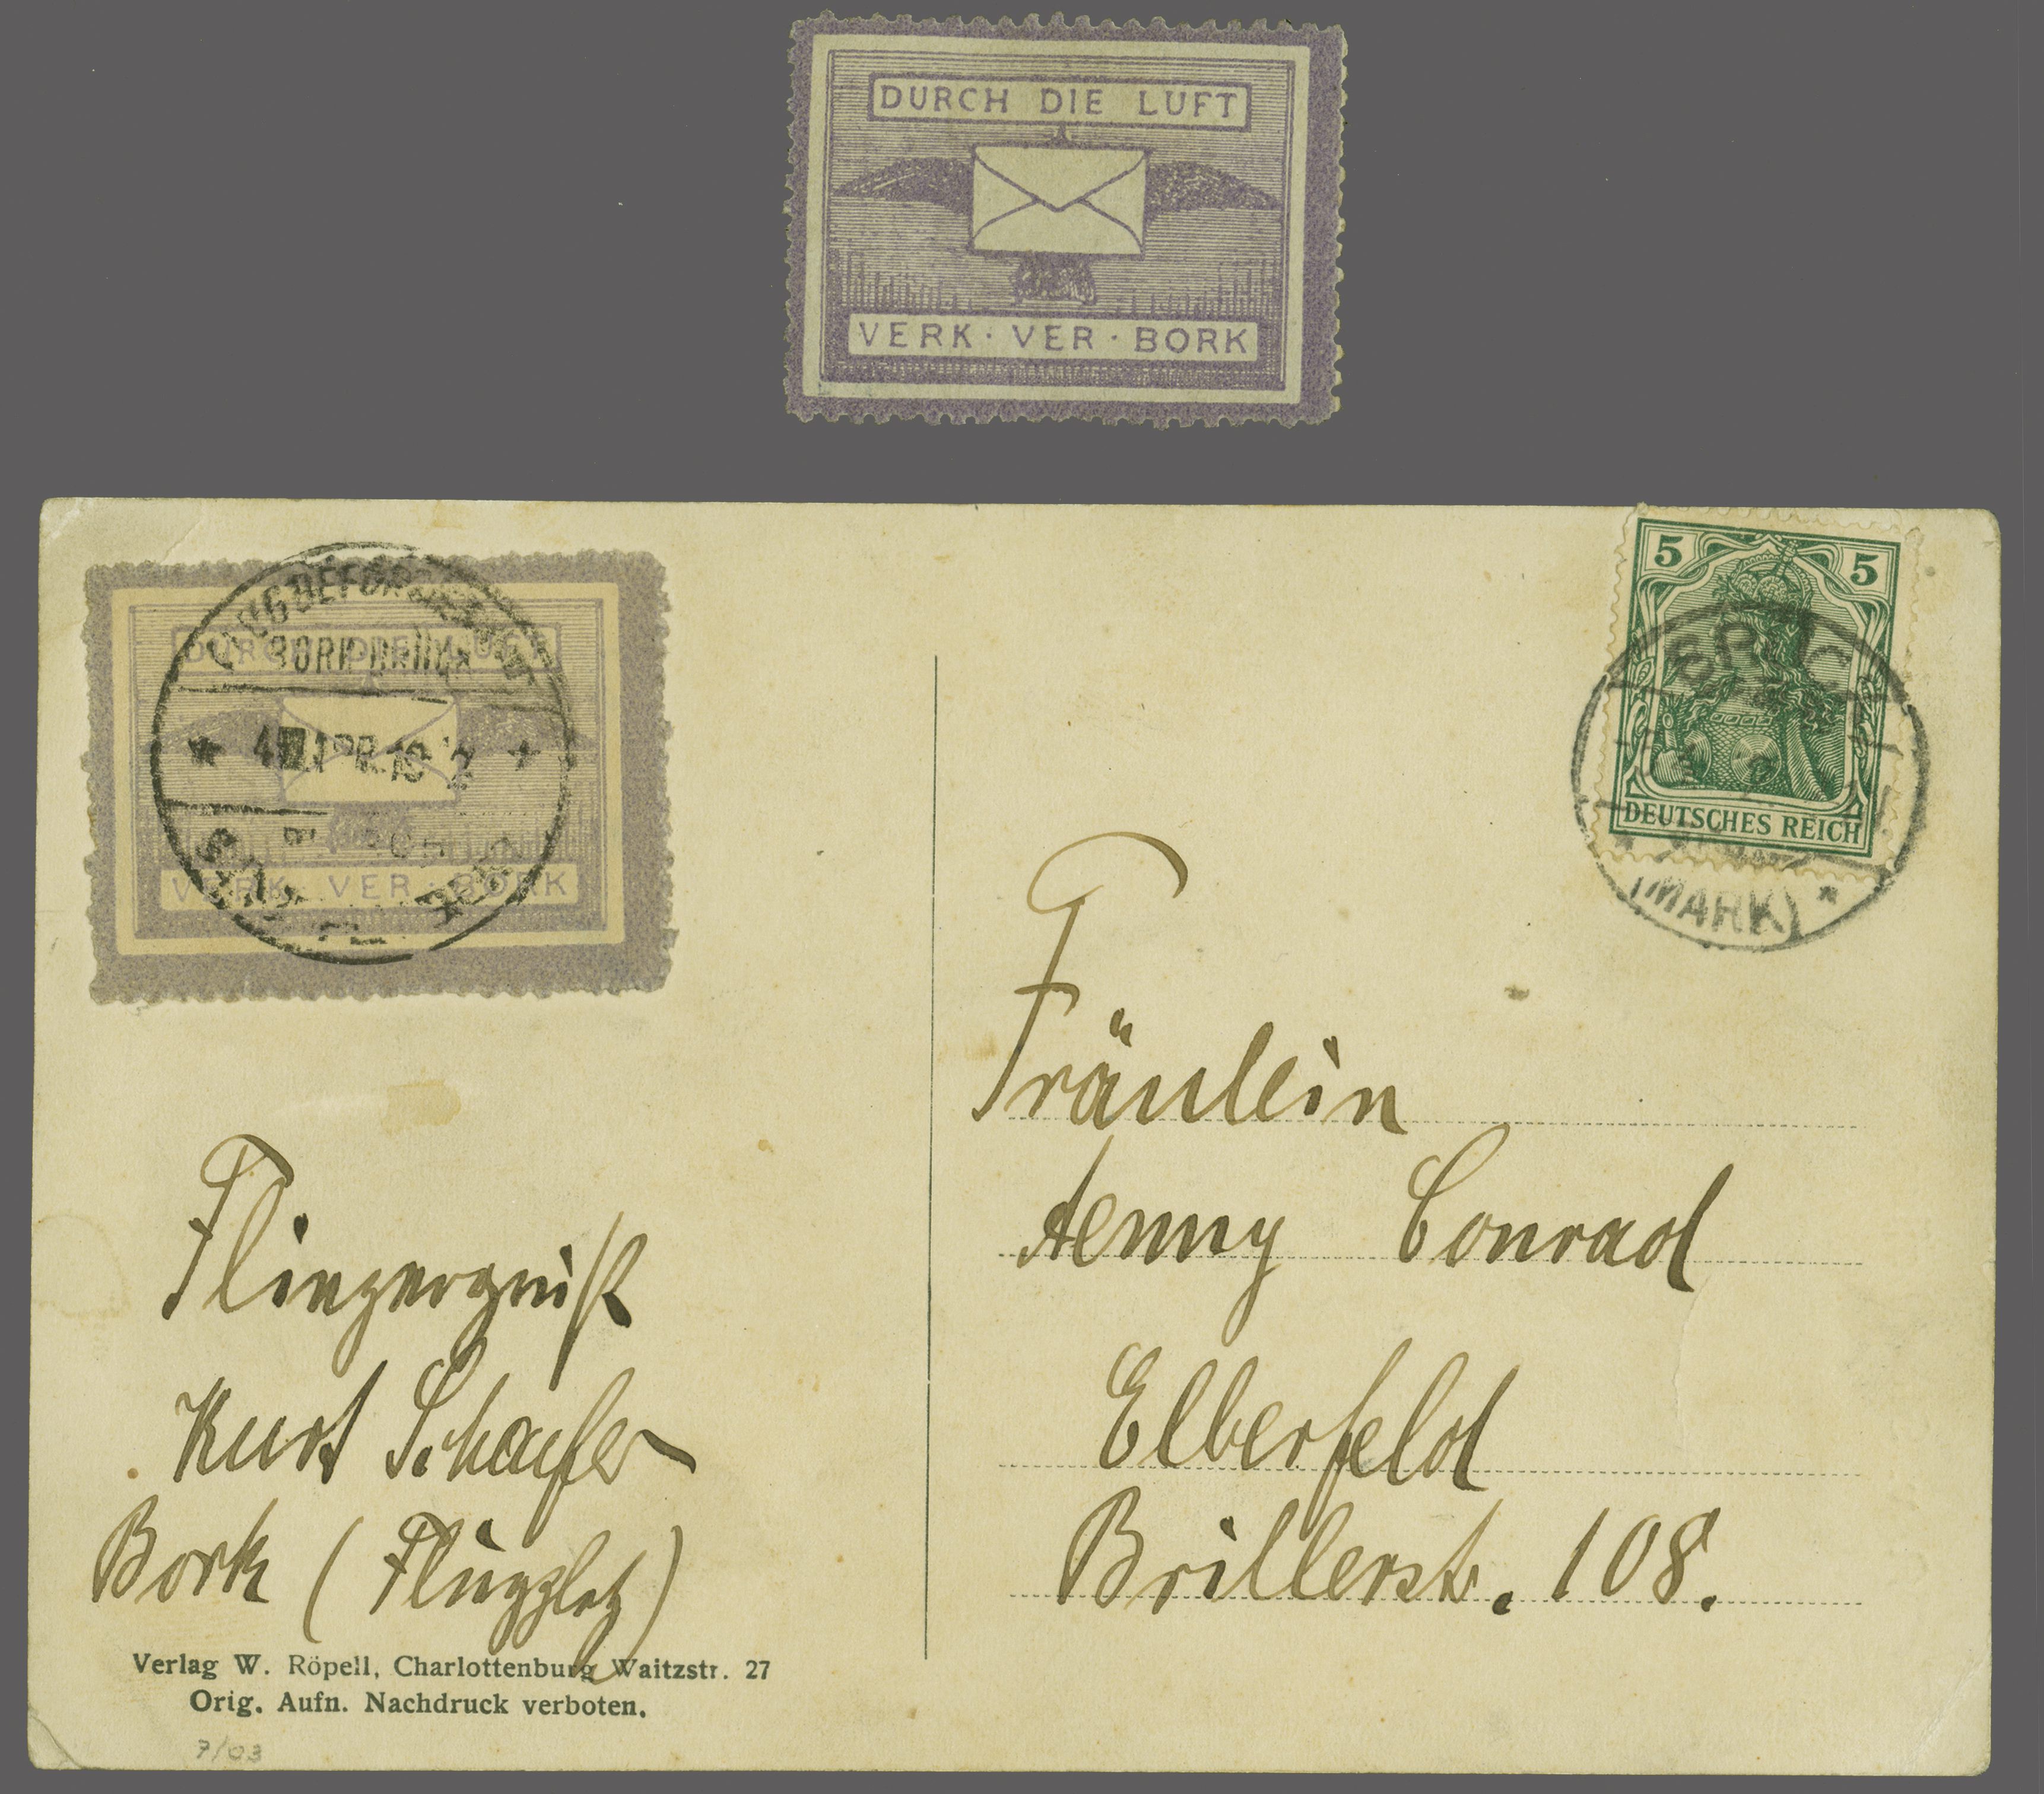 DURCH DIE LUFT
VERK · VER · BORK
DURCH DIE LUFT
BORK
APR. 19 2
VERK · VER · BORK
5 5
DEUTSCHES REICH
(MARK) *
Fräulein
Aenny Conrad
Elberfeld
Brillerstr. 108.
Kurt Schaefer
Bork (Flugplatz)
Verlag W. Röpell, Charlottenburg Waitzstr. 27
Orig. Aufn. Nachdruck verboten.
7/03